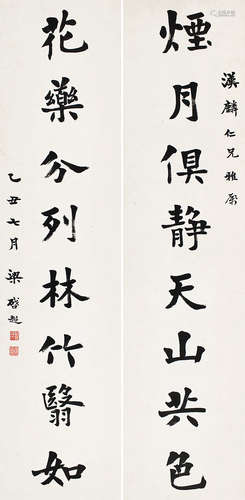 漢麟仁兄雅屬
煙月俱靜天山共色
花藥分列林竹翳如
乙丑七月 梁啓超